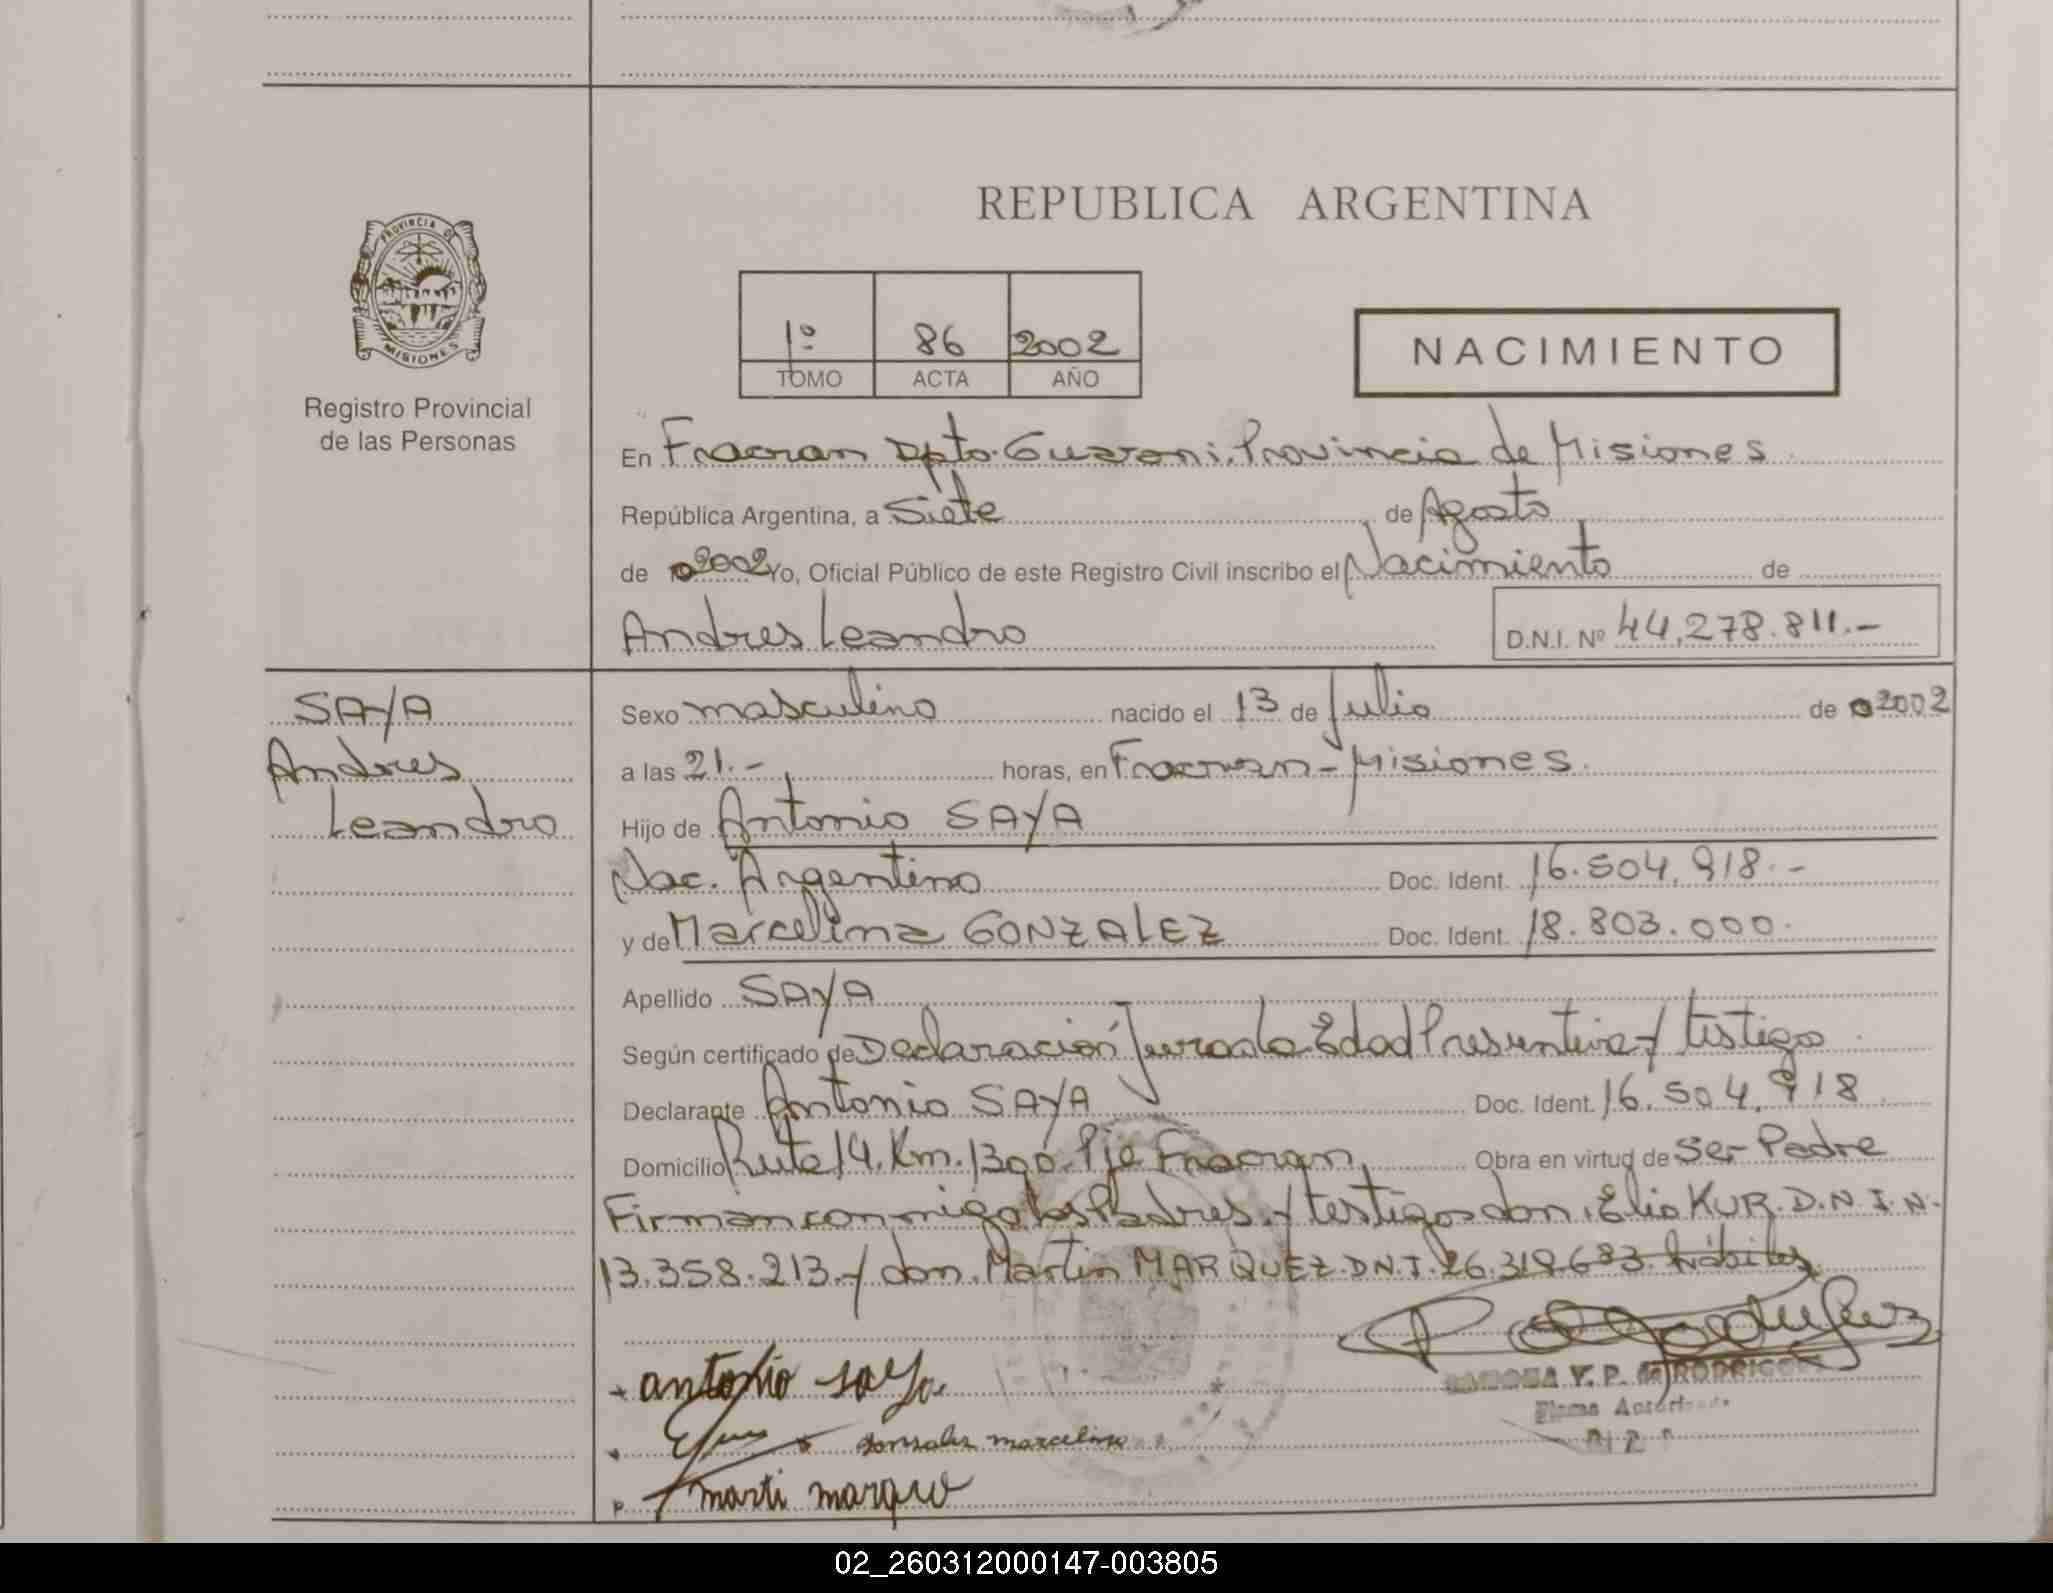 REPUBLICA ARGENTINA
PROVINCIA DE
MISIONES
Registro Provincial
de las Personas
1º 86 2002
TOMO ACTA AÑO
NACIMIENTO
En Fracran Dpto. Guarani. Provincia de Misiones
República Argentina, a Siete de Agosto
de 2002 Yo, Oficial Público de este Registro Civil inscribo el Nacimiento de
Andres Leandro D.N.I. Nº 44.278.811.-
SAYA
Andres
Leandro
Sexo masculino nacido el 13 de Julio de 2002
a las 21.- horas, en Fracran - Misiones.
Hijo de Antonio SAYA
Nac. Argentino Doc. Ident. 16.504.918.-
y de Marcelina GONZALEZ Doc. Ident. 18.803.000.
Apellido SAYA
Según certificado de Declaración Jurada Edad Presuntiva y testigo
Declarante Antonio SAYA Doc. Ident. 16.504.918
Domicilio Ruta 14. Km. Pje Fracran, Obra en virtud de Ser Padre
Firman conmigo los Padres. y testigos don. Elio KUR. D.N.I.N.
13.358.213.- y don. Martin MARQUEZ. D.N.I. hábiles
antonio saya
V. P. RODRIGUEZ
Firma
gonzales marcelina
marti marque
02_260312000147-003805